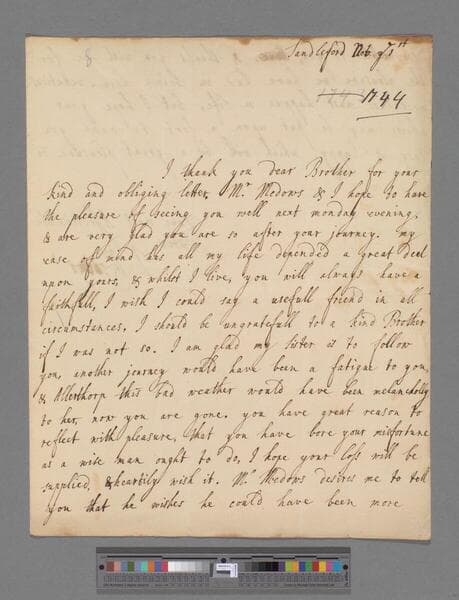 Sandleford Nob. ye 1st
1744
I thank you dear Brother for your
kind and obliging letter, Mr Medows & I hope to have
the pleasure of seeing you well next monday evening,
& are very glad you are so after your journey. my
ease of mind has all my life depended a great deal
upon yours, & whilst I live, you will always have a
faithfull, I wish I could say a usefull friend in all
circumstances, I should be ungratefull to a kind Brother
if I was not so. I am glad my sister is to follow
you, another journey would have been a fatigue to you,
& Allerthorp this bad weather would have been melancholly
to her, now you are gone. you have great reason to
reflect with pleasure, that you have bore your misfortune
as a wise man ought to do, I hope your loss will be
supplied, & heartily wish it. Mr Medows desires me to tell
you that he wishes he could have been more